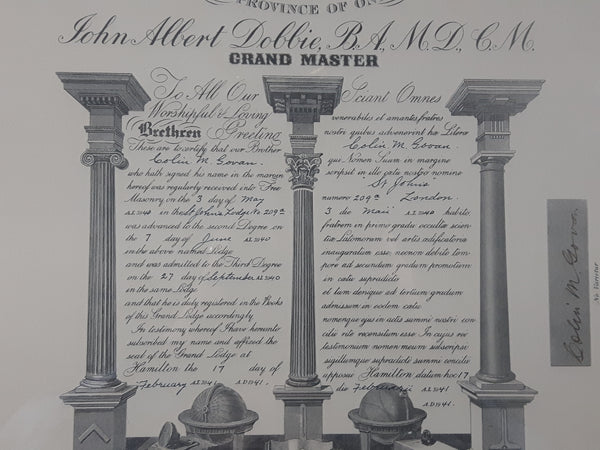 PROVINCE OF ON
John Albert Dobbie, B.A., M.D., C.M.
GRAND MASTER
To All Our
Worshipful & Loving
Brethren Greeting
These are to certify that our Brother
Colin M. Govan.
who hath signed his name in the margin
hereof was regularly received into Free
Masonry on the 3 day of May
A.L. 5940 in the St John's Lodge No 209a
was advanced to the second Degree on
the 7 day of June A.L. 5940
in the above named Lodge
and was admitted to the Third Degree
on the 27 day of September A.L. 5940
in the same Lodge
and that he is duly registered in the Books
of this Grand Lodge accordingly
In testimony whereof I have hereunto
subscribed my name and affixed the
seal of the Grand Lodge at
Hamilton the 17 day of
February A.L. 5941 A.D. 1941.
Sciant Omnes
venerabiles et amantes fratres
nostri quibus advenerint hæ Literæ
Colin M. Govan.
qui Nomen Suum in margine
scripsit in illo catu nostro nomine
St John's
numero 209a London.
3 die Maii A.L. 5940 habito,
fratrem in primo gradu occultæ scien-
tiæ Latomorum vel artis ædificatoriæ
inauguratum esse necnon debito tem-
pore ad secundum gradum promotum
in catu supradicto
et tum denique ad tertium gradum
admissum in eodem catu
nomenque ejus in actis summi nostri con-
cilii rite recensitum esse. In cujus rei
testimonium nomen meum subscripsi
sigillumque supradicti summi concilii
apposui Hamilton datum hoc 17
die Februarii A.L. 5941
A.D. 1941.
Colin M Govan.
Ne Varietur